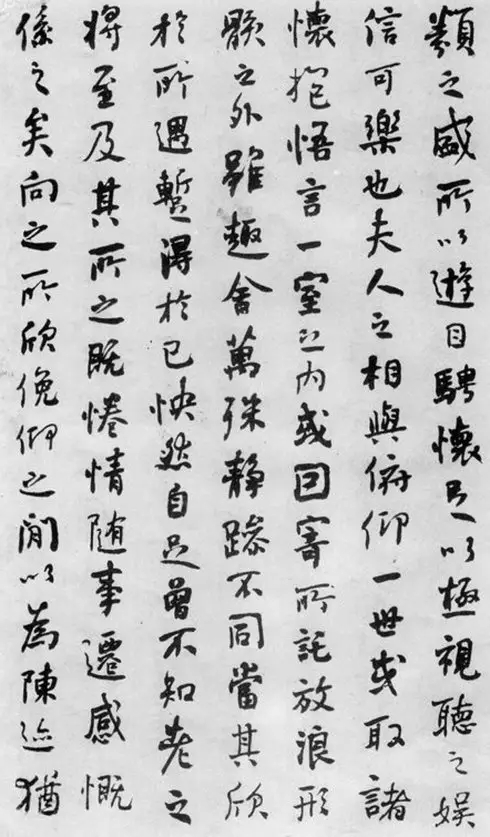 類之盛所以遊目騁懷足以極視聽之娛
信可樂也夫人之相與俯仰一世或取諸
懷抱悟言一室之內或因寄所託放浪形
骸之外雖趣舍萬殊靜躁不同當其欣
於所遇暫得於己怏然自足曾不知老之
將至及其所之既惓情隨事遷感慨
係之矣向之所欣俛仰之閒以為陳迹猶